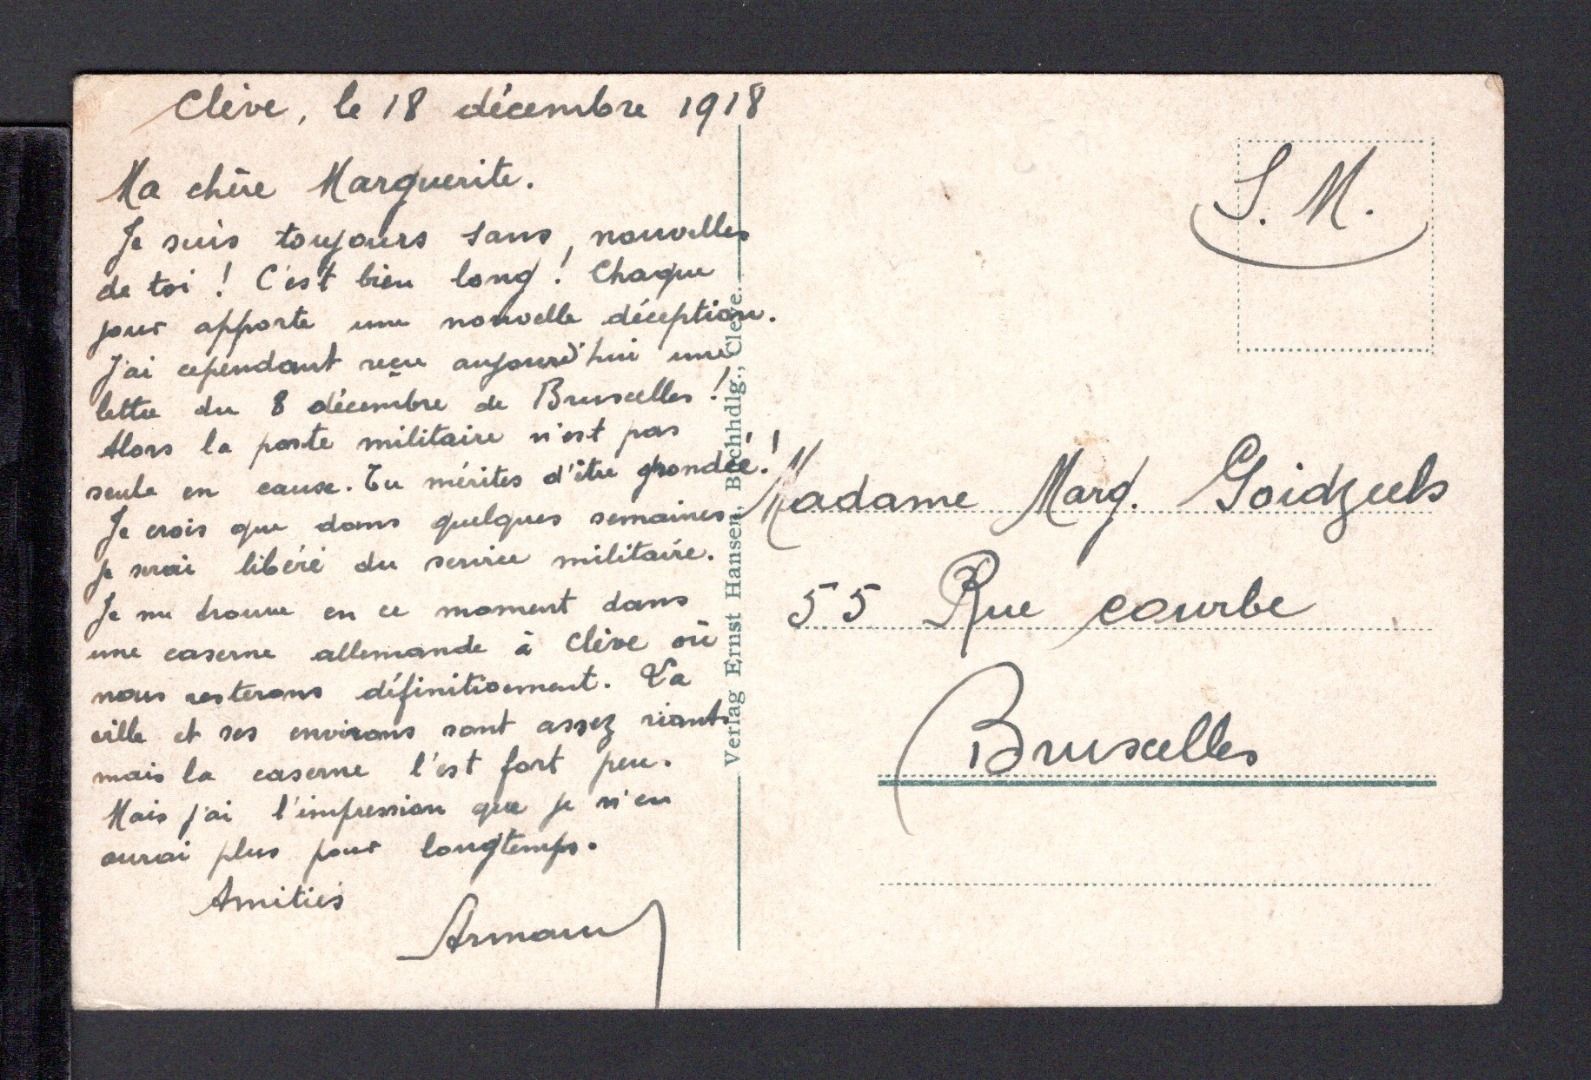 Clève, le 18 décembre 1918
Ma chère Marguerite.
Je suis toujours sans nouvelles
de toi ! C'est bien long ! Chaque
jour apporte une nouvelle déception.
J'ai cependant reçu aujourd'hui une
lettre du 8 décembre de Bruxelles !
Alors la poste militaire n'est pas
seule en cause. Tu mérites d'être grondée !
Je crois que dans quelques semaines
je serai libéré du service militaire.
Je me trouve en ce moment dans
une caserne allemande à Clève où
nous resterons définitivement. La
ville et ses environs sont assez riants
mais la caserne l'est fort peu.
Mais j'ai l'impression que je n'en
aurai plus pour longtemps.
Amitiés
Armand
Verlag Ernst Hansen, Buchhdlg., Cleve.
S. M.
Madame Marg. Goidzeels
55 Rue courbe
Bruxelles